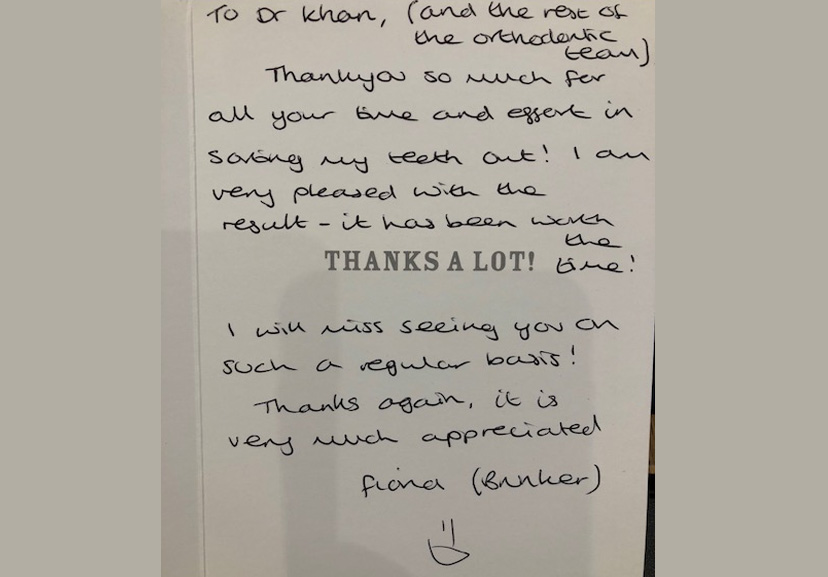 To Dr Khan, (and the rest of
the orthodontic
team)
Thankyou so much for
all your time and effort in
sorting my teeth out! I am
very pleased with the
result - it has been worth
the
time!
THANKS A LOT!
I will miss seeing you on
such a regular basis!
Thanks again, it is
very much appreciated
Fiona (Bunker)